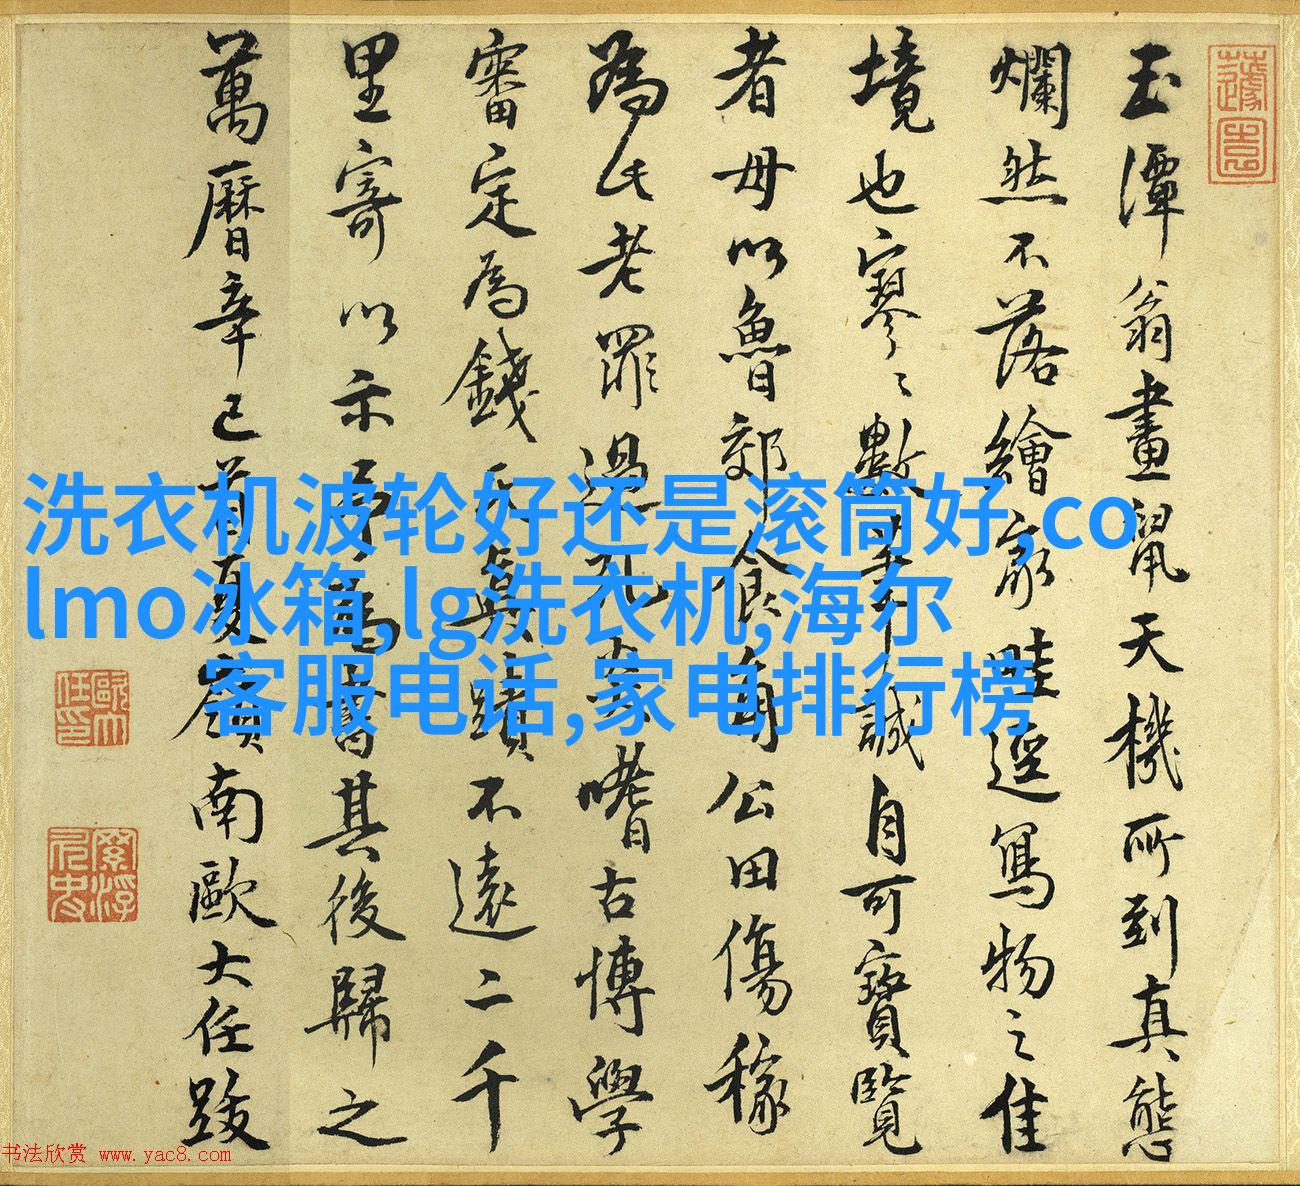 玉潭翁畫鼠天機所到真態
爛然不落繪家畦逕寫物之佳
境也寥〻數筆誠自可寶覽
者毋以魯郊食角公田傷稼
為此老罪過孔嗜古博學
審定為錢氏真蹟不遠二千
里寄以示予為書其後歸之
萬曆辛巳首夏嶺南歐大任跋
洗衣机波轮好还是滚筒好,co
lmo冰箱,lg洗衣机,海尔
客服电话,家电排行榜
歐大任印
书法欣赏 www.yac8.com